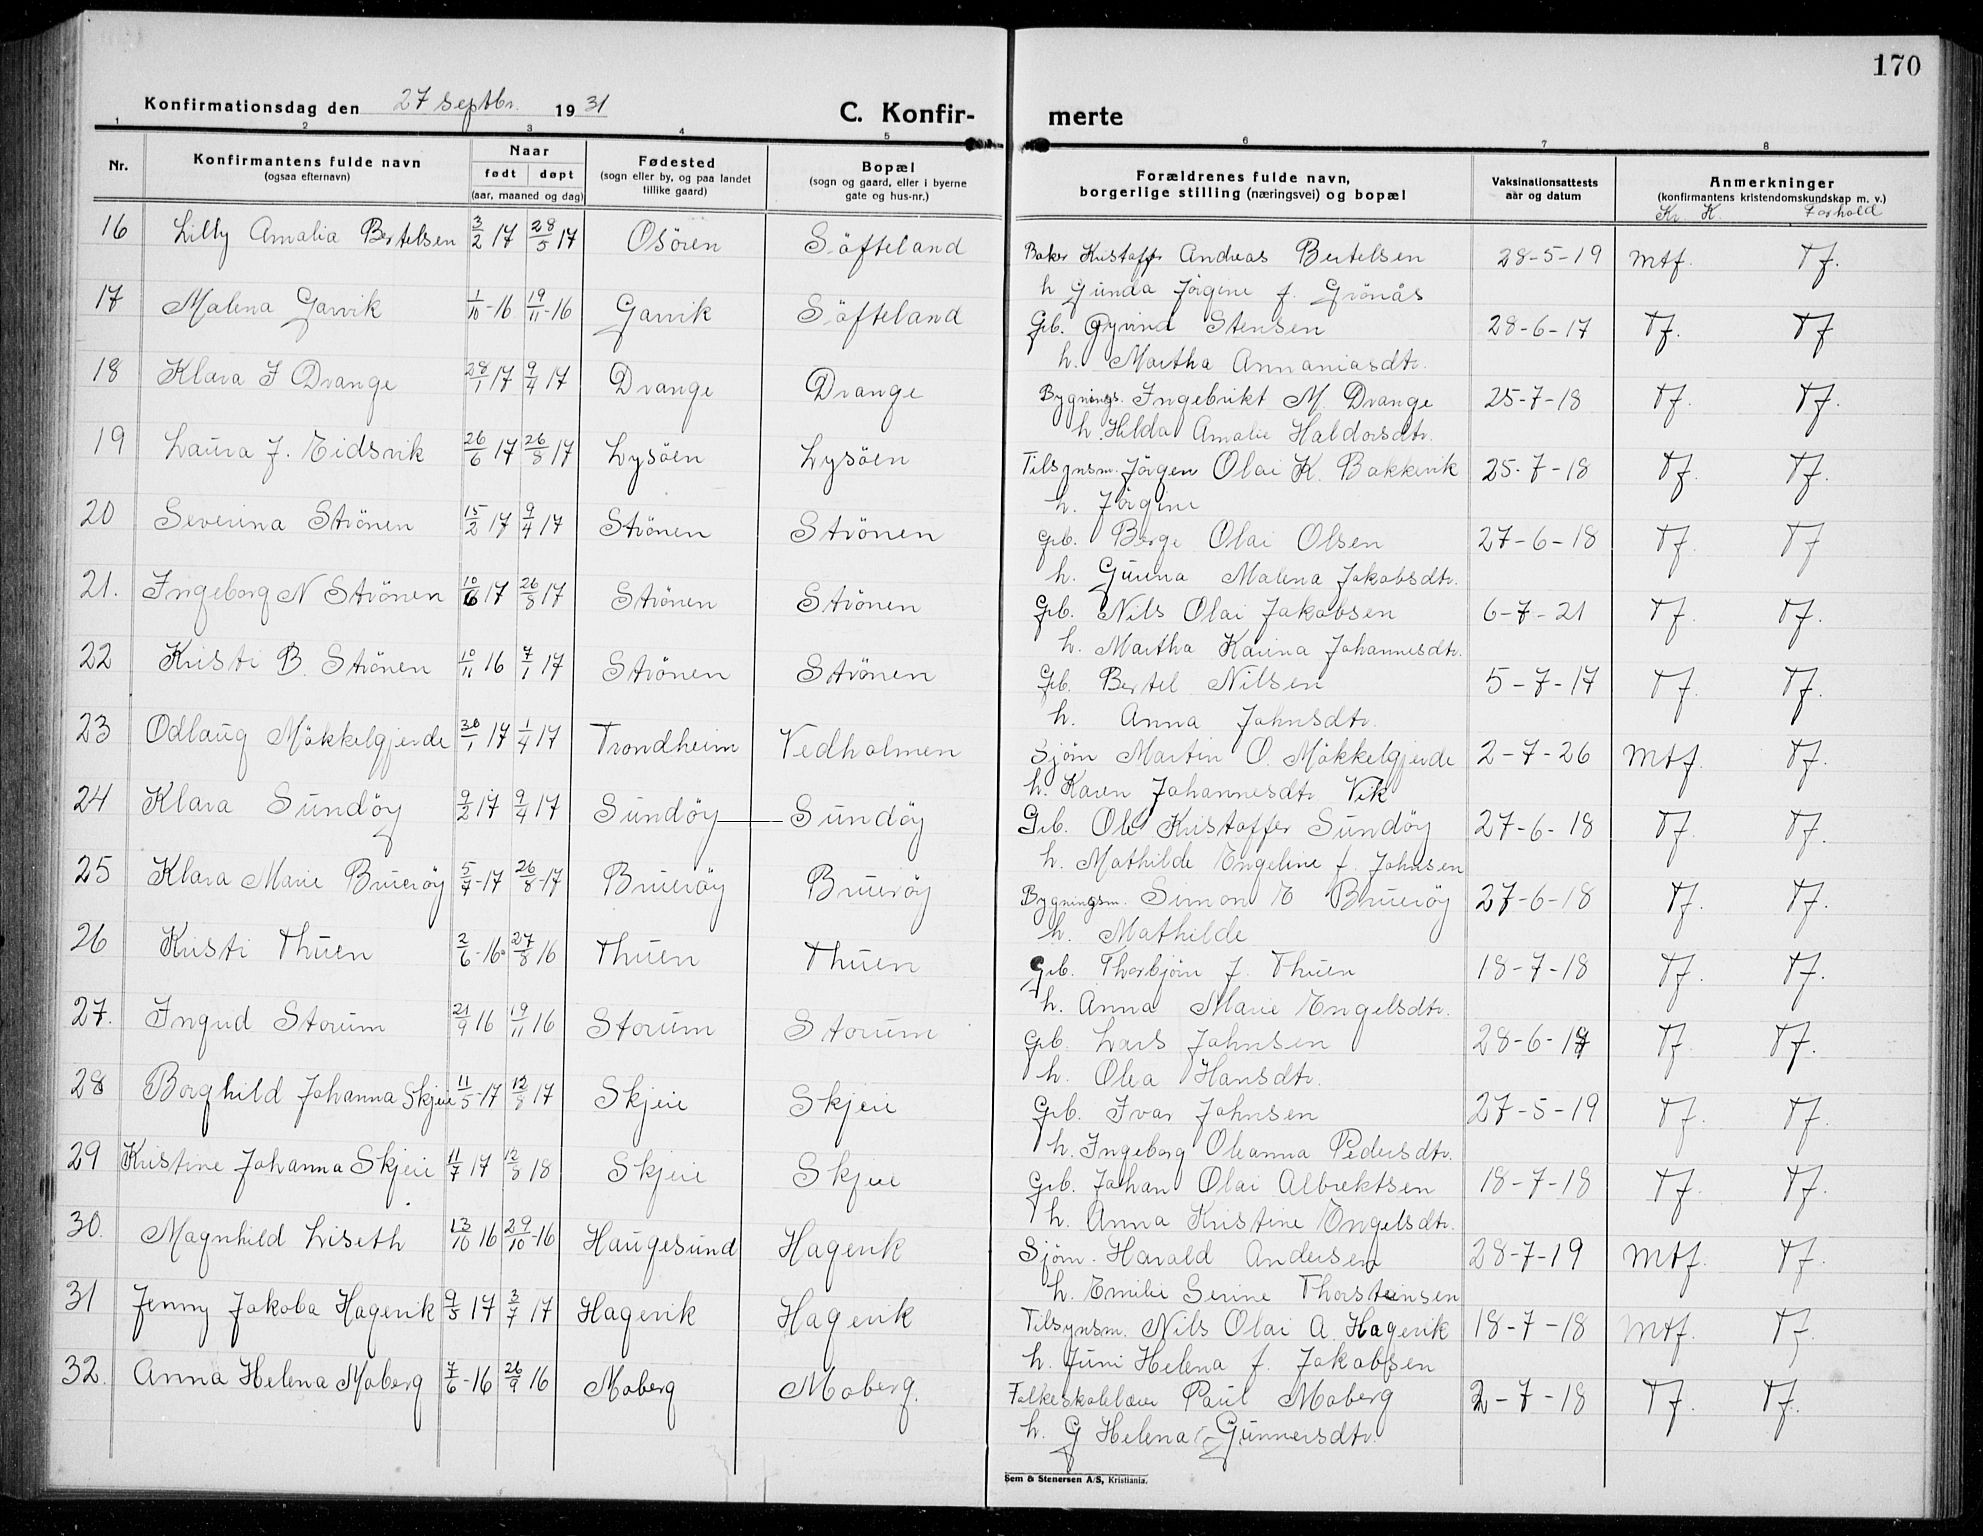 170
Konfirmationsdag den 27 septbr. 1931
C. Konfir- merte
1 2 3 4 5 6 7 8
Nr.
Konfirmantens fulde navn
(ogsaa efternavn)
Naar
født døpt
(aar, maaned og dag)
Fødested
(sogn eller by, og paa landet
tillike gaard)
Bopæl
(sogn og gaard, eller i byerne
gate og hus-nr.)
Forældrenes fulde navn,
borgerlige stilling (næringsvei) og bopæl
Vaksinationsattests
aar og datum
Anmerkninger
(konfirmantens kristendomskundskap m. v.)
Kr K Forhold
16 Lilly Amalia Bertelsen 3/2 17 28/5 17 Osören Söfteland Baker Kristoffer Andreas Bertelsen 28-5-19 Mtf. Tf.
h Gunda Jörgine f. Grönås
17 Malena Garvik 1/10-16 19/11-16 Garvik Söfteland Grb. Øyvind Stensen 28-6-17 Tf. Tf
h. Martha Annaniasdtr.
18 Klara I Drange 28/1 17 9/4 17 Drange Drange Bygnings. Ingebrikt M Drange 25-7-18 Tf. Tf.
h. Hilda Amalie Haldorsdtr.
19 Laura J. Eidsvik 26/6 17 26/8 17 Lysöen Lysöen Tilsynsm. Jörgen Olai K. Bakkevik 25-7-18 Tf. Tf.
h. Jörgine
20 Severina Strönen 15/2 17 9/4 17 Strönen Strönen Grb. Berge Olai Olsen 27-6-18 Tf. Tf
h. Gurina Malena Jakobsdtr.
21. Ingeborg N Strönen 10/6 17 26/8 17 Strönen Strönen Grb. Nils Olai Jakobsen 6-7-21 Tf. Tf.
h. Martha Karina Johannesdtr.
22 Kristi B. Strönen 10/11 16 7/1 17 Strönen Strönen Grb. Bertel Nilsen 5-7-17 Tf. Tf.
h. Anna Johnsdtr.
23 Odlaug Mökkelgjerde 30/1 17 1/4 17 Trondheim Vedholmen Sjöm Martin O. Mökkelgjerde 2-7-26 Mtf. Tf.
h. Karen Johannesdtr Vik
24 Klara Sundöy 9/2 17 9/4 17 Sundöy Sundöy Grb. Ole Kristoffer Sundöy 27-6-18 Tf. Tf.
h. Mathilde Engeline f. Johnsen
25 Klara Marie Brueröy 5/7-17 26/8-17 Brueröy Brueröy Bygningsm. Simon E Brueröy 27-6-18 Tf. Tf.
h. Mathilde
26 Kristi Thuen 2/6-16 27/8 16 Thuen Thuen Grb. Thorbjörn J. Thuen 18-7-18 Tf. Tf.
h. Anna Marie Engelsdtr.
27. Ingrid Storum 21/9 16 19/11 16 Storum Storum Grb. Lars Johnsen 28-6-17 Tf. Tf.
h. Olea Hansdtr.
28 Borghild Johanna Skjeie 11/5-17 12/8 17 Skjeie Skjeie Grb. Ivar Johnsen 27-5-19 Tf. Tf
h. Ingeborg Oleanna Pedersdtr.
29 Kristine Johanna Skjeie 11/7 17 12/8 18 Skjeie Skjeie Grb. Johan Olai Albrektsen 18-7-18 Tf. Tf.
h. Anna Kristine Engelsdtr.
30. Magnhild Liseth 13/10 16 29/10-16 Haugesund Hagevik Sjöm. Harald Andersen 28-7-19 Mtf. Tf.
h. Emilie Serine Thorsteinsen
31 Jenny Jakoba Hagevik 9/5 17 3/7 17 Hagevik Hagevik Tilsynsm. Nils Olai A. Hagevik 18-7-18 Mtf. Tf.
h. Juni Helena f. Jakobsen
32. Anna Helena Moberg 7/6-16 26/9 16 Moberg Moberg. Folkeskolelærer Paul Moberg 2-7-18 Tf. Tf.
h. G Helena Gunnersdtr.
Sem & Stenersen A/S, Kristiania.